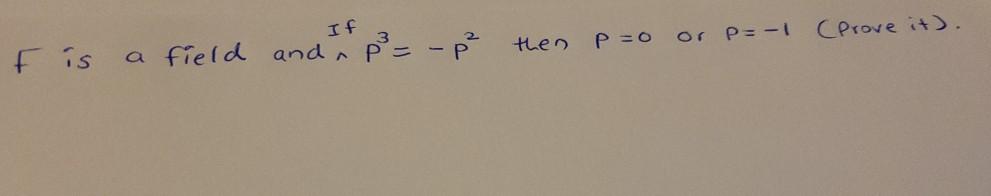 F is a field and ^ If p³ = -p² then p=0 or p=-1 (Prove it).